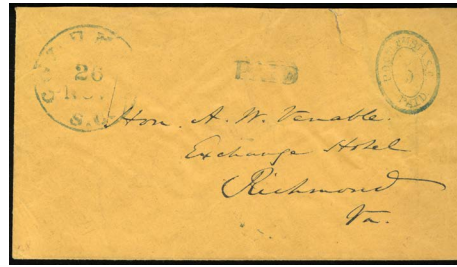 26
S.C.
PAID
5
Hon. A. W. Venable.
Exchange Hotel
Richmond
Va.